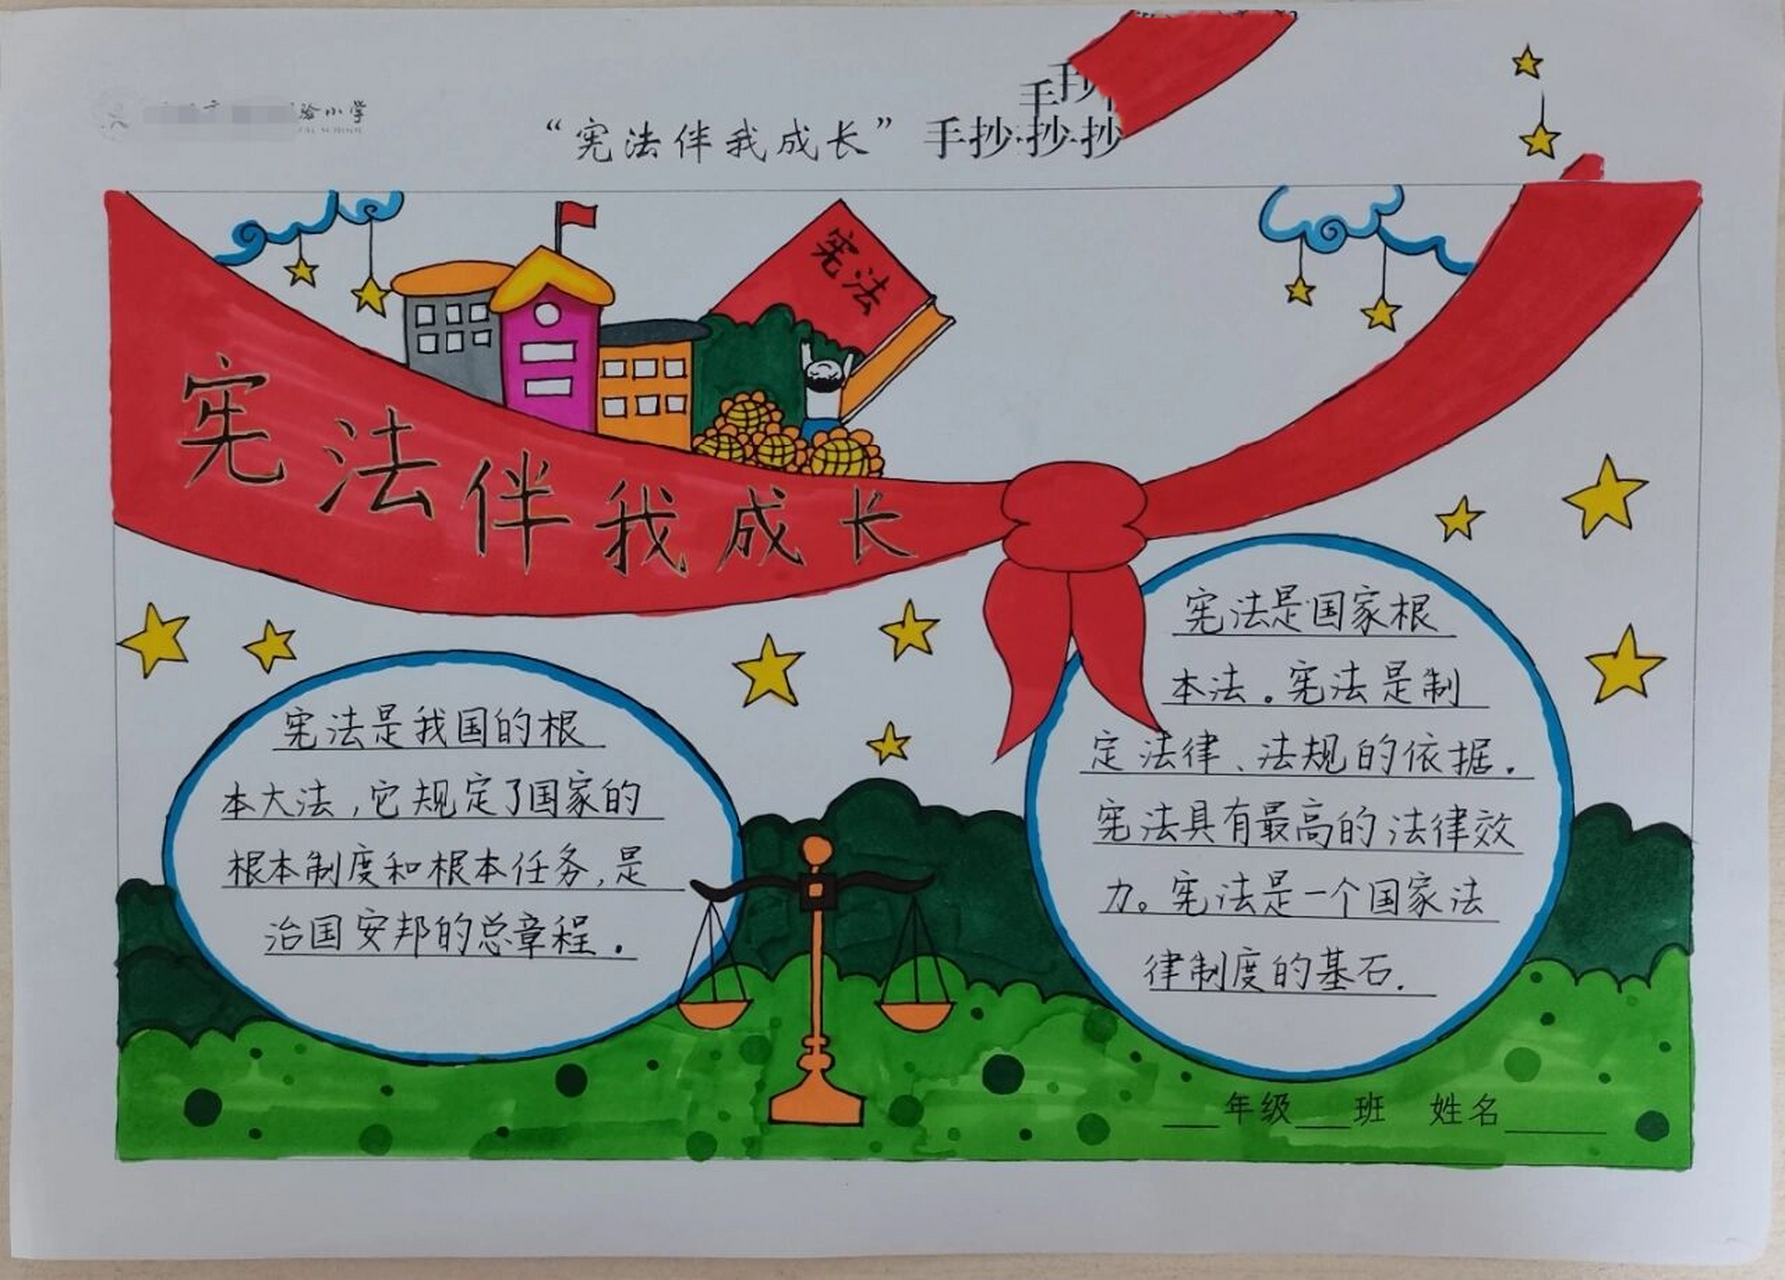 验小学
“宪法伴我成长”手抄·抄·抄
手
宪法
宪法伴我成长
宪法是国家根
本法。宪法是制
定法律、法规的依据.
宪法具有最高的法律效
力。宪法是一个国家法
律制度的基石.
宪法是我国的根
本大法,它规定了国家的
根本制度和根本任务,是
治国安邦的总章程.
___年级___班 姓名_____